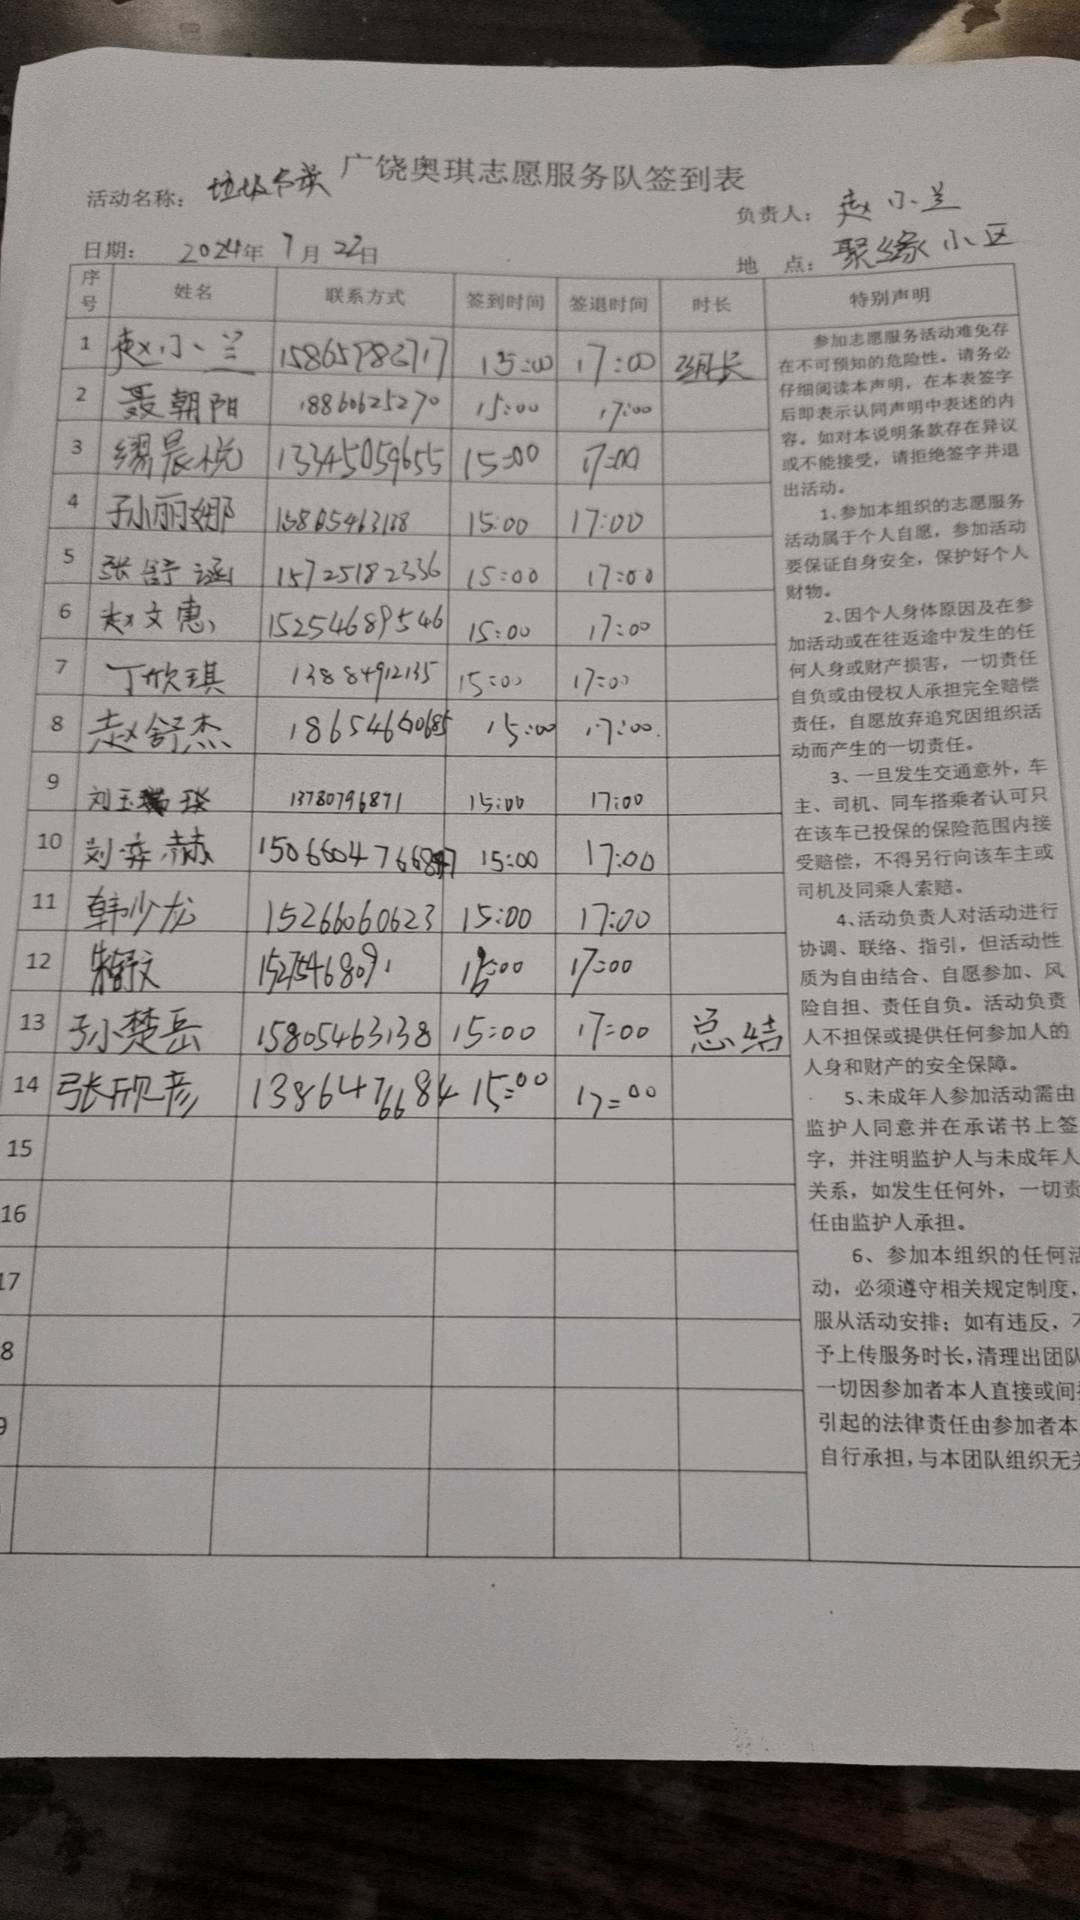 广饶奥琪志愿服务队签到表
活动名称：垃圾分类
负责人：赵小兰
日期：2024年7月22日
地 点：聚缘小区
序号 姓名 联系方式 签到时间 签退时间 时长 特别声明
1 赵小兰 15:00 17:00
2 聂朝阳 18860625270 15:00 17:00
3 缪晨悦 13345059655 15:00 17:00
4 孙小丽娜 15805463138 15:00 17:00
5 张舒涵 15725182336 15:00 17:00
6 赵文惠 15254689546 15:00 17:00
7 丁欣琪 13884912135 15:00 17:00
8 赵舒杰 15:00 17:00
9 刘玉 13780796871 15:00 17:00
10 刘奕赫 15:00 17:00
11 韩少龙 15266060623 15:00 17:00
12 15:00 17:00
13 孙楚岳 15805463138 15:00 17:00 总结
14 张欣彦 15:00 17:00
15
16
17
8
9
参加志愿服务活动难免存
在不可预知的危险性。请务必
仔细阅读本声明，在本表签字
后即表示认同声明中表述的内
容。如对本说明条款存在异议
或不能接受，请拒绝签字并退
出活动。
1、参加本组织的志愿服务
活动属于个人自愿，参加活动
要保证自身安全，保护好个人
财物。
2、因个人身体原因及在参
加活动或在往返途中发生的任
何人身或财产损害，一切责任
自负或由侵权人承担完全赔偿
责任，自愿放弃追究因组织活
动而产生的一切责任。
3、一旦发生交通意外，车
主、司机、同车搭乘者认可只
在该车已投保的保险范围内接
受赔偿，不得另行向该车主或
司机及同乘人索赔。
4、活动负责人对活动进行
协调、联络、指引，但活动性
质为自由结合、自愿参加、风
险自担、责任自负。活动负责
人不担保或提供任何参加人的
人身和财产的安全保障。
5、未成年人参加活动需由
监护人同意并在承诺书上签
字，并注明监护人与未成年人
关系，如发生任何外，一切责
任由监护人承担。
6、参加本组织的任何活
动，必须遵守相关规定制度，
服从活动安排；如有违反，不
予上传服务时长，清理出团队
一切因参加者本人直接或间接
引起的法律责任由参加者本
自行承担，与本团队组织无关